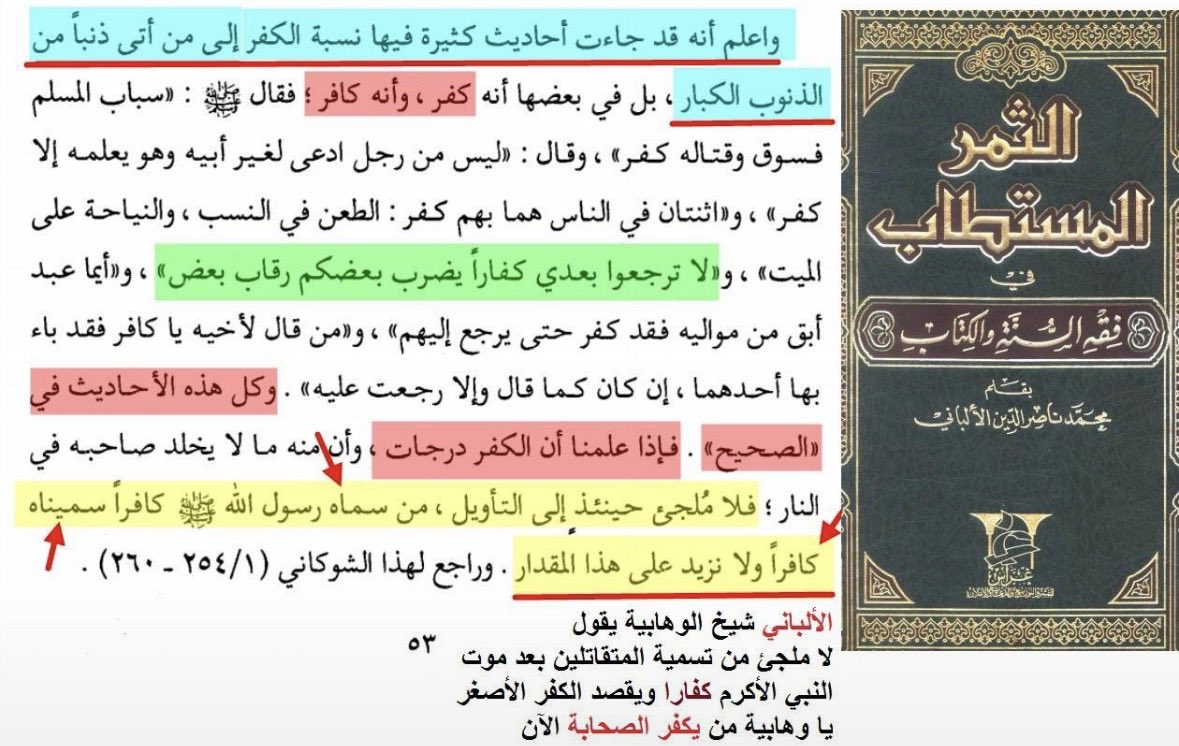 واعلم أنه قد جاءت أحاديث كثيرة فيها نسبة الكفر إلى من أتى ذنباً من
الذنوب الكبار ، بل في بعضها أنه كفر ، وأنه كافر ؛ فقال ﷺ : «سباب المسلم
فسوق وقتاله كفر» ، وقال : «ليس من رجل ادعى لغير أبيه وهو يعلمه إلا
كفر» ، و«اثنتان في الناس هما بهم كفر : الطعن في النسب ، والنياحة على
الميت» ، و«لا ترجعوا بعدي كفاراً يضرب بعضكم رقاب بعض» ، و«أيما عبد
أبق من مواليه فقد كفر حتى يرجع إليهم» ، و«من قال لأخيه يا كافر فقد باء
بها أحدهما ، إن كان كما قال وإلا رجعت عليه» . وكل هذه الأحاديث في
«الصحيح» . فإذا علمنا أن الكفر درجات ، وأن منه ما لا يخلد صاحبه في
النار ؛ فلا مُلجئ حينئذ إلى التأويل ، من سماه رسول الله ﷺ كافراً سميناه
كافراً ولا نزيد على هذا المقدار . وراجع لهذا الشوكاني (١/ ٢٥٤ ـ ٢٦٠) .
٥٣
الألباني شيخ الوهابية يقول
لا ملجئ من تسمية المتقاتلين بعد موت
النبي الأكرم كفارا ويقصد الكفر الأصغر
يا وهابية من يكفر الصحابة الآن
الثمر
المستطاب
في
فقه السنة والكتاب
بقلم
محمد ناصر الدين الألباني
غراس